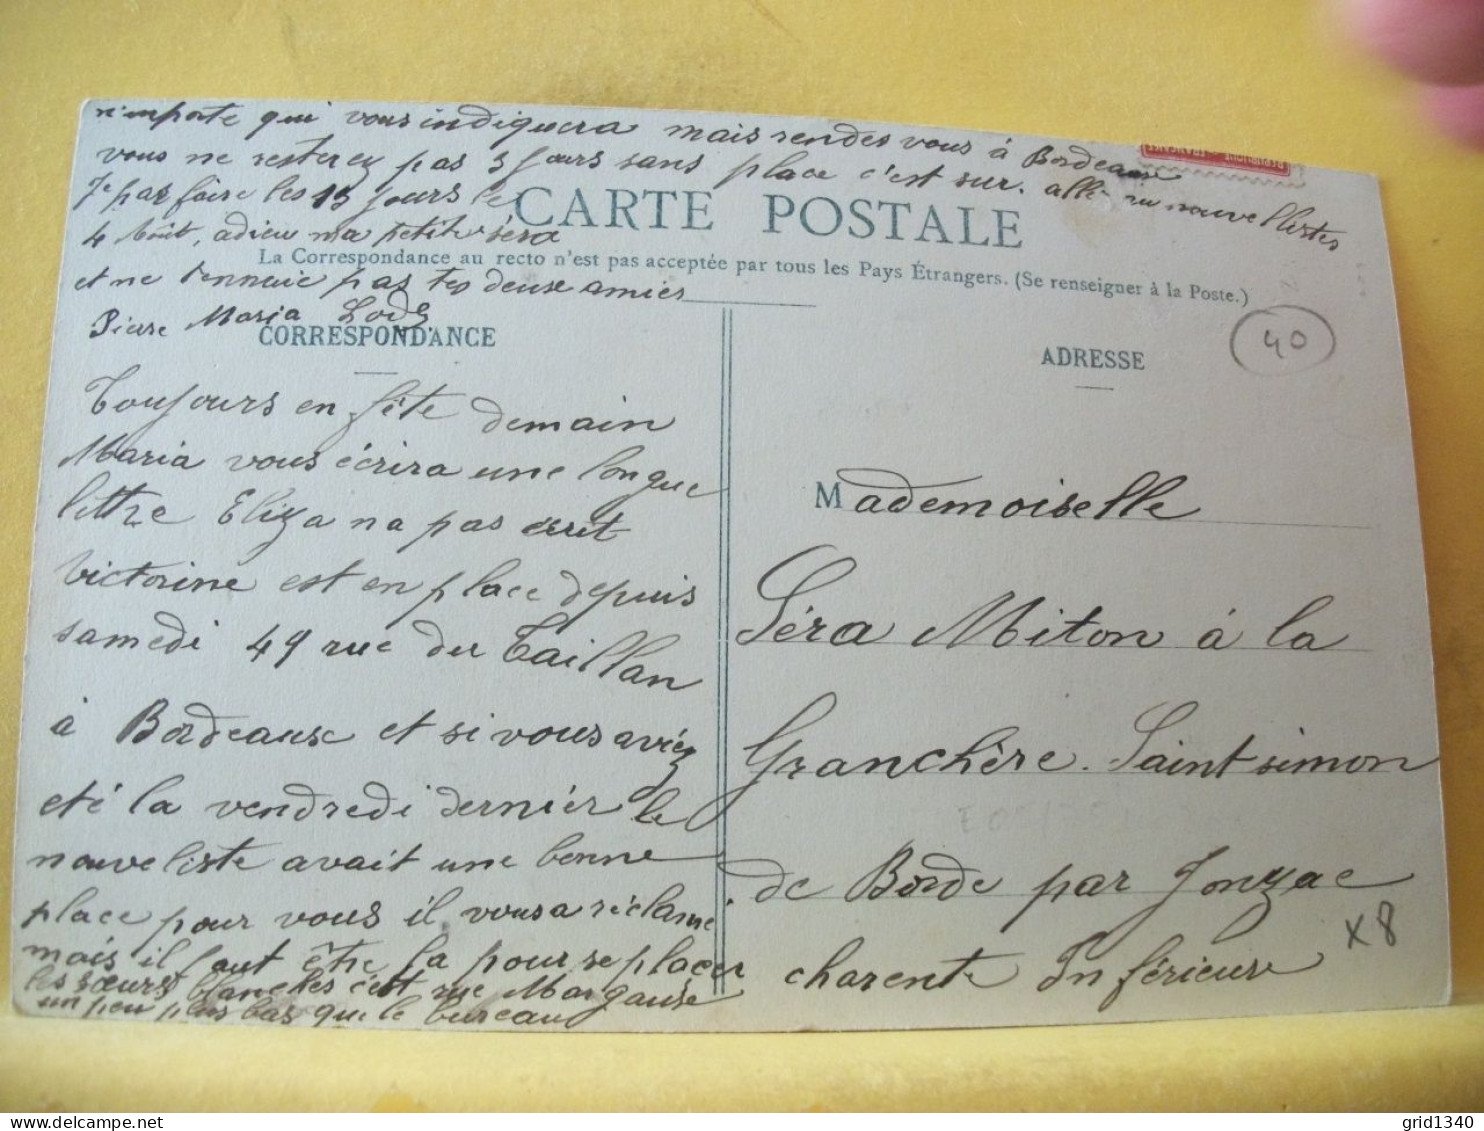 n'importe qui vous indiquera mais rendes vous à Bordeaux
vous ne resterez pas 3 jours sans place c'est sur. allé au nouvellistes
Je pas faire les 15 jours le
4 Août, adieu ma petite Séra
et ne t'ennuie pas tes deux amies
Pierre Maria
CARTE POSTALE
La Correspondance au recto n'est pas acceptée par tous les Pays Étrangers. (Se renseigner à la Poste.)
CORRESPONDANCE
Toujours en fête demain
Maria vous écrira une longue
lettre Eliza na pas écrit
Victorine est en place depuis
samedi 49 rue du Taillan
à Bordeaux et si vous aviéz
eté la vendredi derniér le
nouveliste avait une bonne
place pour vous il vous a réclamé
mais il faut être la pour se plaçer
les sœurs blanches c'est rue Margause
un peu plus bas que le bureau
ADRESSE
40
Mademoiselle
Séra Miton à la
Granchère. Saint simon
de Borde par Jonzac
charente Inférieure
x8
grid1340